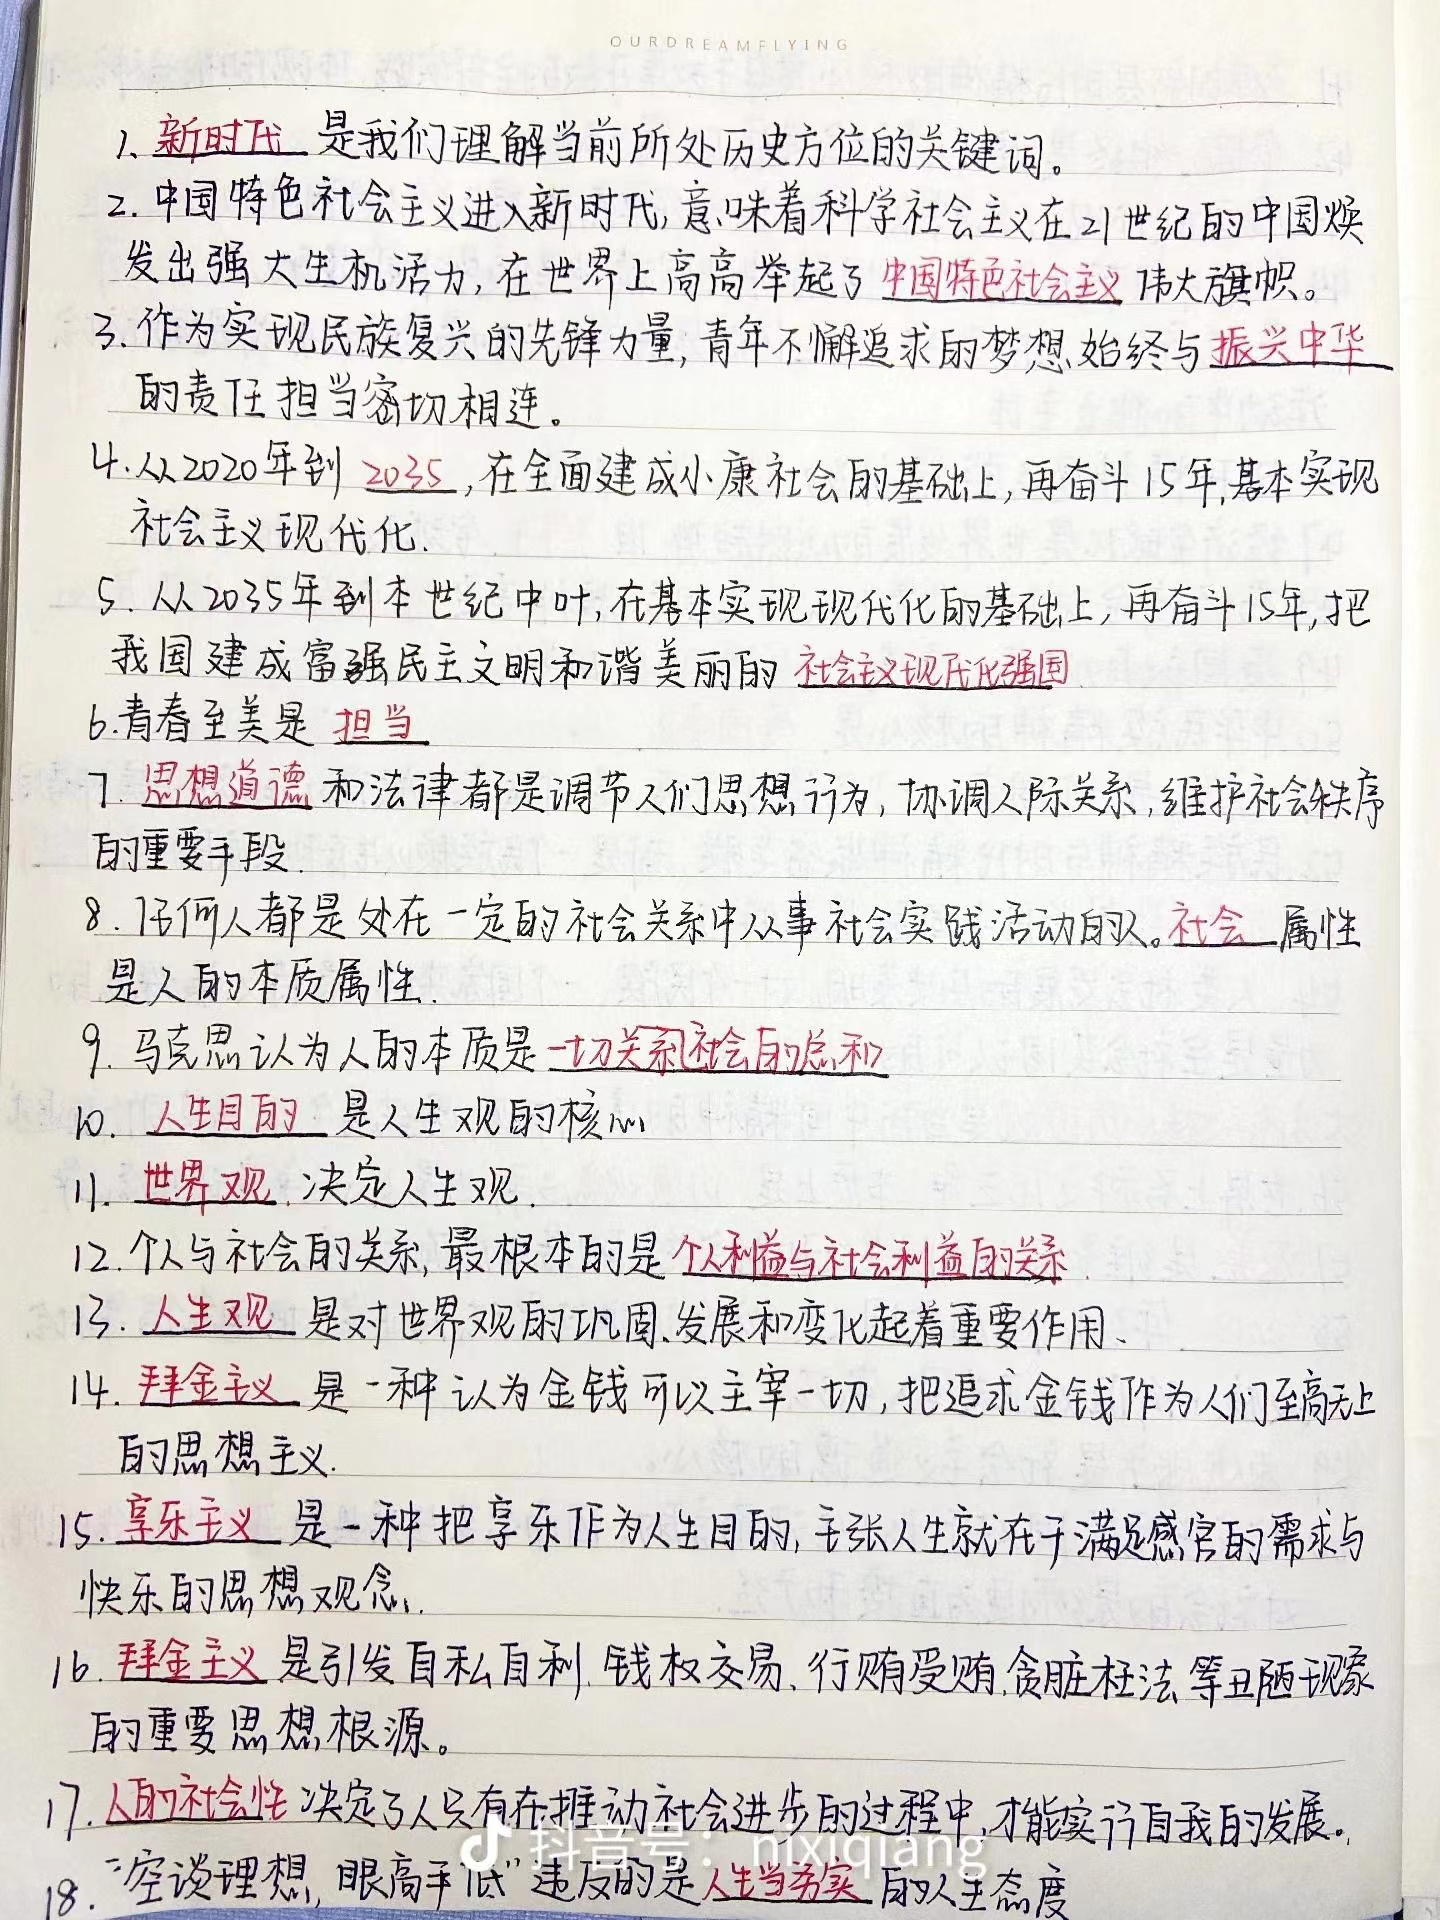 OURDREAMFLYING
1、新时代 是我们理解当前所处历史方位的关键词。
2.中国特色社会主义进入新时代,意味着科学社会主义在21世纪的中国焕
发出强大生机活力,在世界上高高举起了 中国特色社会主义 伟大旗帜。
3.作为实现民族复兴的先锋力量,青年不懈追求的梦想始终与 振兴中华
的责任担当密切相连。
4.从2020年到 2035,在全面建成小康社会的基础上,再奋斗15年,基本实现
社会主义现代化.
5.从2035年到本世纪中叶,在基本实现现代化的基础上,再奋斗15年,把
我国建成富强民主文明和谐美丽的 社会主义现代化强国
6.青春至美是 担当
7.思想道德 和法律都是调节人们思想行为,协调人际关系,维护社会秩序
的重要手段.
8.任何人都是处在一定的社会关系中从事社会实践活动的人。社会 属性
是人的本质属性.
9.马克思认为人的本质是一切关系社会的总和
10. 人生目的 是人生观的核心
11.世界观.决定人生观.
12.个人与社会的关系,最根本的是 个人利益与社会利益的关系.
13.人生观 是对世界观的巩固、发展和变化起着重要作用、
14.拜金主义 是一种认为金钱可以主宰一切,把追求金钱作为人们至高无上
的思想主义.
15.享乐主义 是一种把享乐作为人生目的,主张人生就在于满足感官的需求与
快乐的思想观念.
16.拜金主义 是引发自私自利、钱权交易、行贿受贿、贪脏枉法等丑陋现象
的重要思想根源。
17.人的社会性 决定了人只有在推动社会进步的过程中,才能实行自我的发展。
抖音号：nixiqiang
18.“空谈理想,眼高手低”违反的是人生当务实 的人生态度